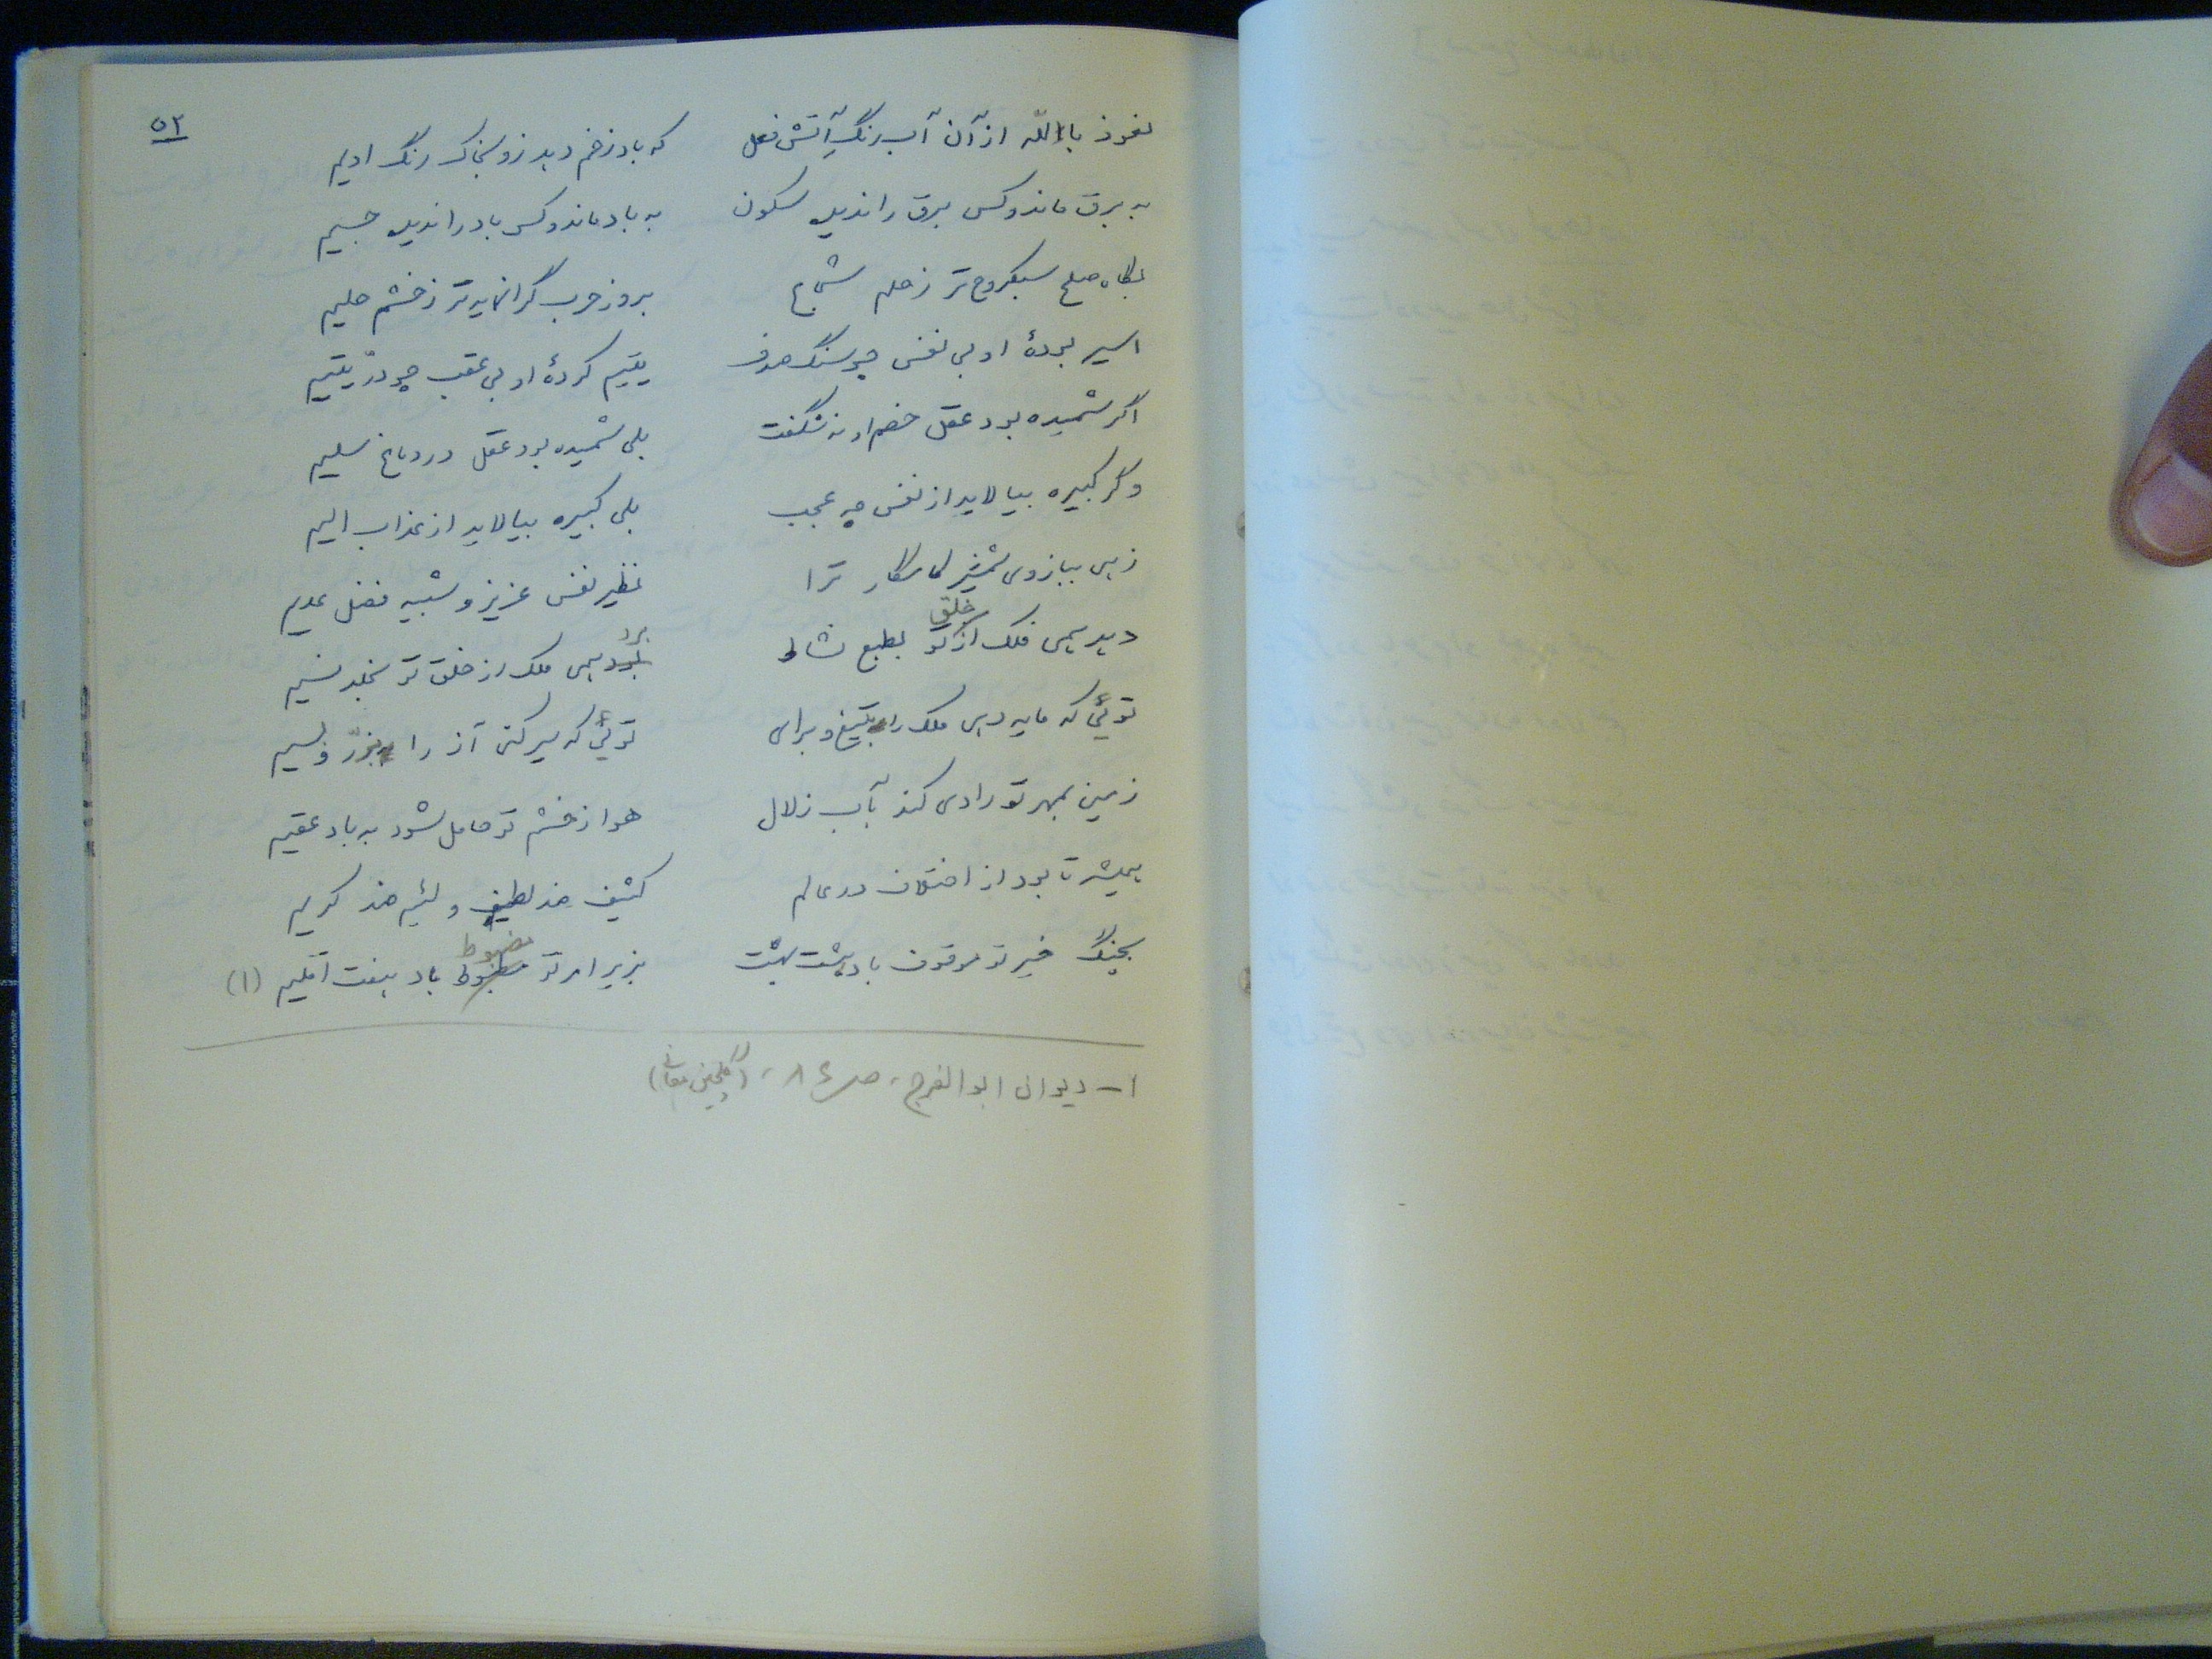 ۵۲
نعوذ باللّه از آن آب رنگِ آتش فعل که باد زخم دهد زو بخاک رنگ ادیم
به برق ماند و کس برق را ندیده سکون به باد ماند و کس باد را ندیده جسیم
بگاه صلح سبکروح تر ز حلم شجاع بروز حرب گرانمایه تر ز خشم حلیم
اسیر بردهٔ او بی نفس چو سنگ صدف یتیم کردهٔ او بی عقب چو درّ یتیم
اگر شمیده بود عقل خصم او نه شگفت بلی شمیده بود عقل در دماغ سلیم
وگر کبیره بیالاید از نفس چه عجب بلی کبیره بیالاید از عذاب الیم
زهی ببازوی شمشیر کامکار ترا نظیر نفس عزیز و شبیه فضل عمیم
خلق
دهد همی فلک از تو بطبع نشاط
برد
همی ملک از خلق تو بخلد نسیم
توئی که مایه دهی ملک را بتیغ و برای توئی که سیر کنی آز را بزرّ و بسیم
زمین بمهر تو رادی کند بآب زلال هوا ز خشم تو حامل شود به باد عقیم
همیشه تا بود از اختلاف در عالم کثیف ضد لطیف و لئیم ضد کریم
مضبوط
خیر تو موقوف باد هشت بهشت بزیر امر تو باد هفت اقلیم (۱)
۱- دیوان ابوالفرج، ص ۸۴، (گلچین معانی)